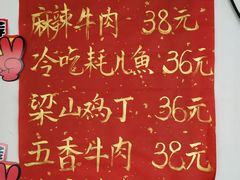 麻辣牛肉 38元
冷吃耗儿魚 36元
梁山鸡丁 36元
五香牛肉 38元